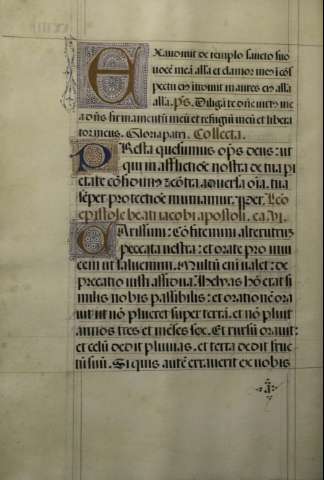 Exaudivit de templo sancto suo
vocē meā alľa et clamor meus ī cōs
pectu eius introivit in aures eius alľa
alľa. ps. Diligā te dn̄e virtus me
a dn̄s firmamentū meū et refugiū meū et libera
tor meus. Gloria patri. Collecta.
Presta quesumus op̄s deus: ut
qui in afflictiōe nostra de tua pi
etate cōfidimꝰ: cōtra adversa oīa. tua
sēper protectiōe muniamur. Per. Lec̄o
epistole beati iacobi apostoli. ca. v.
Carissimi: Cōfitemini alterutrum
peccata nestra: et orate pro invi
cem ut salvemini. Multū eni valet: de
precatio iusti assidua. Helyas hō erat si
milis nobis passibilis: et oratiōe ora
vit ut nō plueret super terrā. et nō pluit
annos tres et mēses sex. Et rursū oravit:
et celū dedit pluvias. et terra dedit fruc
tū suū. Si quis autē erraverit ex vobis